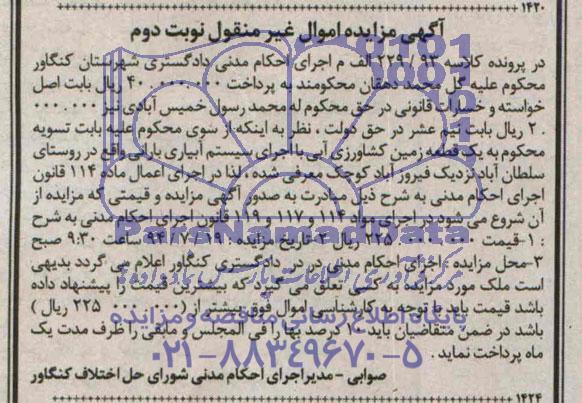 ۱۴۲۰
آگهی مزایده اموال غیر منقول نوبت دوم
در پرونده کلاسه ۹۳ / ۲۲۹ الف م اجرای احکام مدنی دادگستری شهرستان کنگاور
محکوم علیه گل محمد دهقان محکومند به پرداخت ۴۰۰۰۰۰۰۰ ریال بابت اصل
خواسته و خسارات قانونی در حق محکوم له محمد رسول خمیس آبادی نیز ۰۰۰ ۰۰۰
۲۰ ریال بابت نیم عشر در حق دولت ، نظر به اینکه از سوی محکوم علیه بابت تسویه
محکوم به یک قطعه زمین کشاورزی آبی با اجرای سیستم آبیاری بارانی واقع در روستای
سلطان آباد نزدیک فیروز آباد کوچک معرفی شده ، لذا در اجرای اعمال ماده ۱۱۴ قانون
اجرای احکام مدنی به شرح ذیل مبادرت به صدور آگهی مزایده و قیمتی که مزایده از
آن شروع می شود در اجرای مواد ۱۱۴ و ۱۱۷ و ۱۱۹ قانون اجرای احکام مدنی به شرح
: ۱-قیمت ۰۰۰ ۰۰۰ ۲۲۵ ریال ۲-تاریخ مزایده : ۹۴/۷/۱۹ ساعت ۹:۳۰ صبح
۳-محل مزایده : اجرای احکام مدنی در در دادگستری کنگاور اعلام می گردد بدیهی
است ملک مورد مزایده به کسی تعلق می گیرد که بیشترین قیمت را پیشنهاد داده
باشد قیمت باید با توجه به کارشناسی اموال فوق بیشتر از (۰۰۰ ۰۰۰ ۲۲۵ ریال )
باشد در ضمن متقاضیان باید ۱۰ درصد بها را فی المجلس و مابقی را ظرف مدت یک
ماه پرداخت نماید .
صوابی - مدیر اجرای احکام مدنی شورای حل اختلاف کنگاور
۱۴۲۴
ParsNamadData
پایگاه اطلاع رسانی مناقصه و مزایده
۰۲۱-۸۸۳۴۹۶۷۰-۵